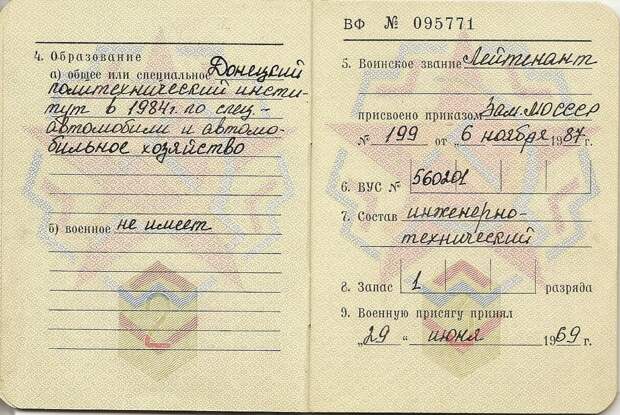 4. Образование
а) общее или специальное Донецкий
политехнический инсти-
тут в 1984г. по спец-
автомобили и автомо-
бильное хозяйство
б) военное не имеет
ВФ № 095771
5. Воинское звание Лейтенант
присвоено приказом Зам.МОСССР
№ 199 от „6 ноября 1987г.
6. ВУС № 560201
7. Состав инженерно-
технический
8. Запас 1 разряда
9. Военную присягу принял
„29 “ июня 1969 г.